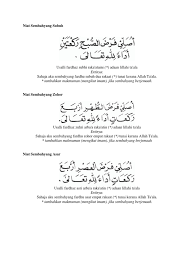 Niat Sembahyang Subuh
أُصَلِّي فَرْضَ الصُّبْحِ رَكْعَتَيْنِ
أَدَاءً لِلَّهِ تَعَالَى .
Usolli fardhas subhi rakataini (*) adaan lillahi ta'ala
Ertinya:
Sahaja aku sembahyang fardhu subuh dua rakaat (*) tunai kerana Allah Ta'ala.
* tambahkan makmuman (mengikut imam), jika sembahyang berjemaah.
Niat Sembahyang Zohor
أُصَلِّي فَرْضَ الظُّهْرِ أَرْبَعَ
رَكَعَاتٍ أَدَاءً لِلَّهِ تَعَالَى .
Ertinya:
Sahaja aku sembahyang fardhu zohor empat rakaat (*) tunai kerana Allah Ta'ala.
* tambahkan makmuman (mengikut imam), jika sembahyang berjemaah.
Niat Sembahyang Asar
أُصَلِّي فَرْضَ الْعَصْرِ أَرْبَعَ
رَكَعَاتٍ أَدَاءً لِلَّهِ تَعَالَى .
Ertinya:
Sahaja aku sembahyang fardhu asar empat rakaat (*) tunai kerana Allah Ta'ala.
* tambahkan makmuman (mengikut imam), jika sembahyang berjemaah.